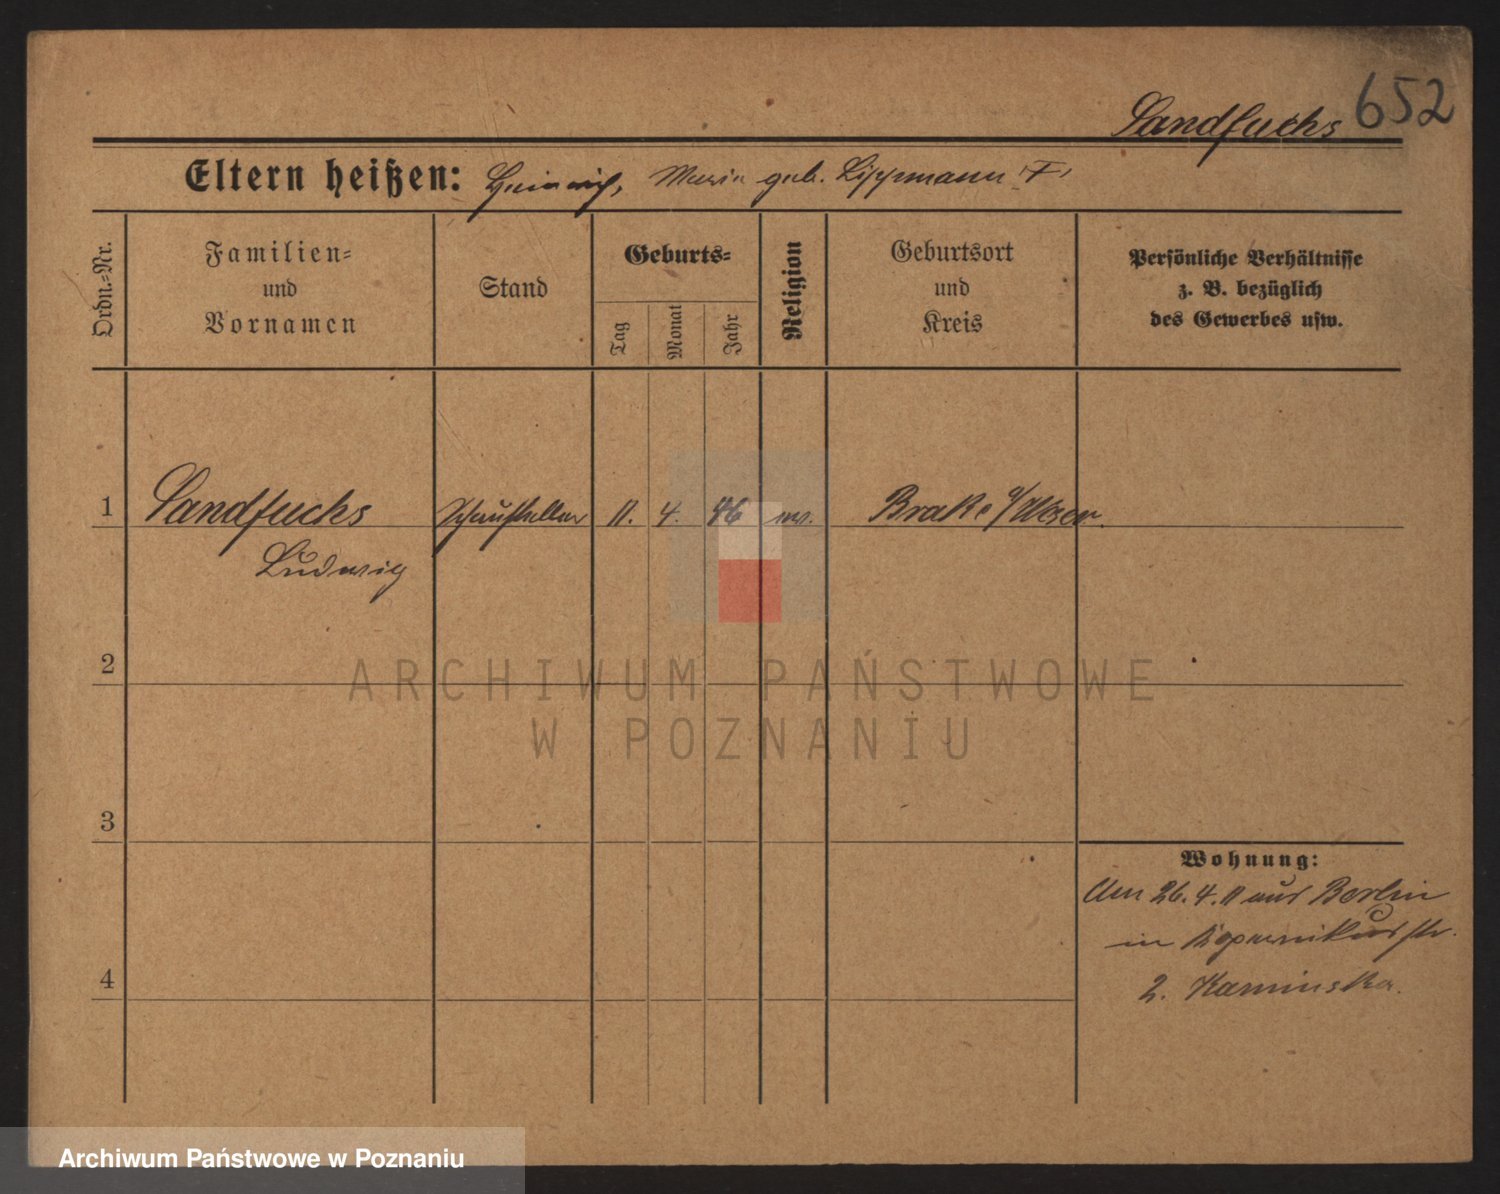 Sandfuchs 652
Eltern heißen: Heinrich, Marie geb. Lippmann "F"
Ordn.=Nr.
Familien=
und
Vornamen
Stand
Geburts=
Tag
Monat
Jahr
Religion
Geburtsort
und
Kreis
Persönliche Verhältnisse
z. B. bezüglich
des Gewerbes usw.
1 Sandfuchs Schausteller 11. 4. 46 ev. Brake a/Weser.
Ludwig
2
3
4
Wohnung:
Am 26. 4. 11 aus Berlin
in Kopernikusstr.
2. Kaminska.
ARCHIWUM PAŃSTWOWE
W POZNANIU
Archiwum Państwowe w Poznaniu